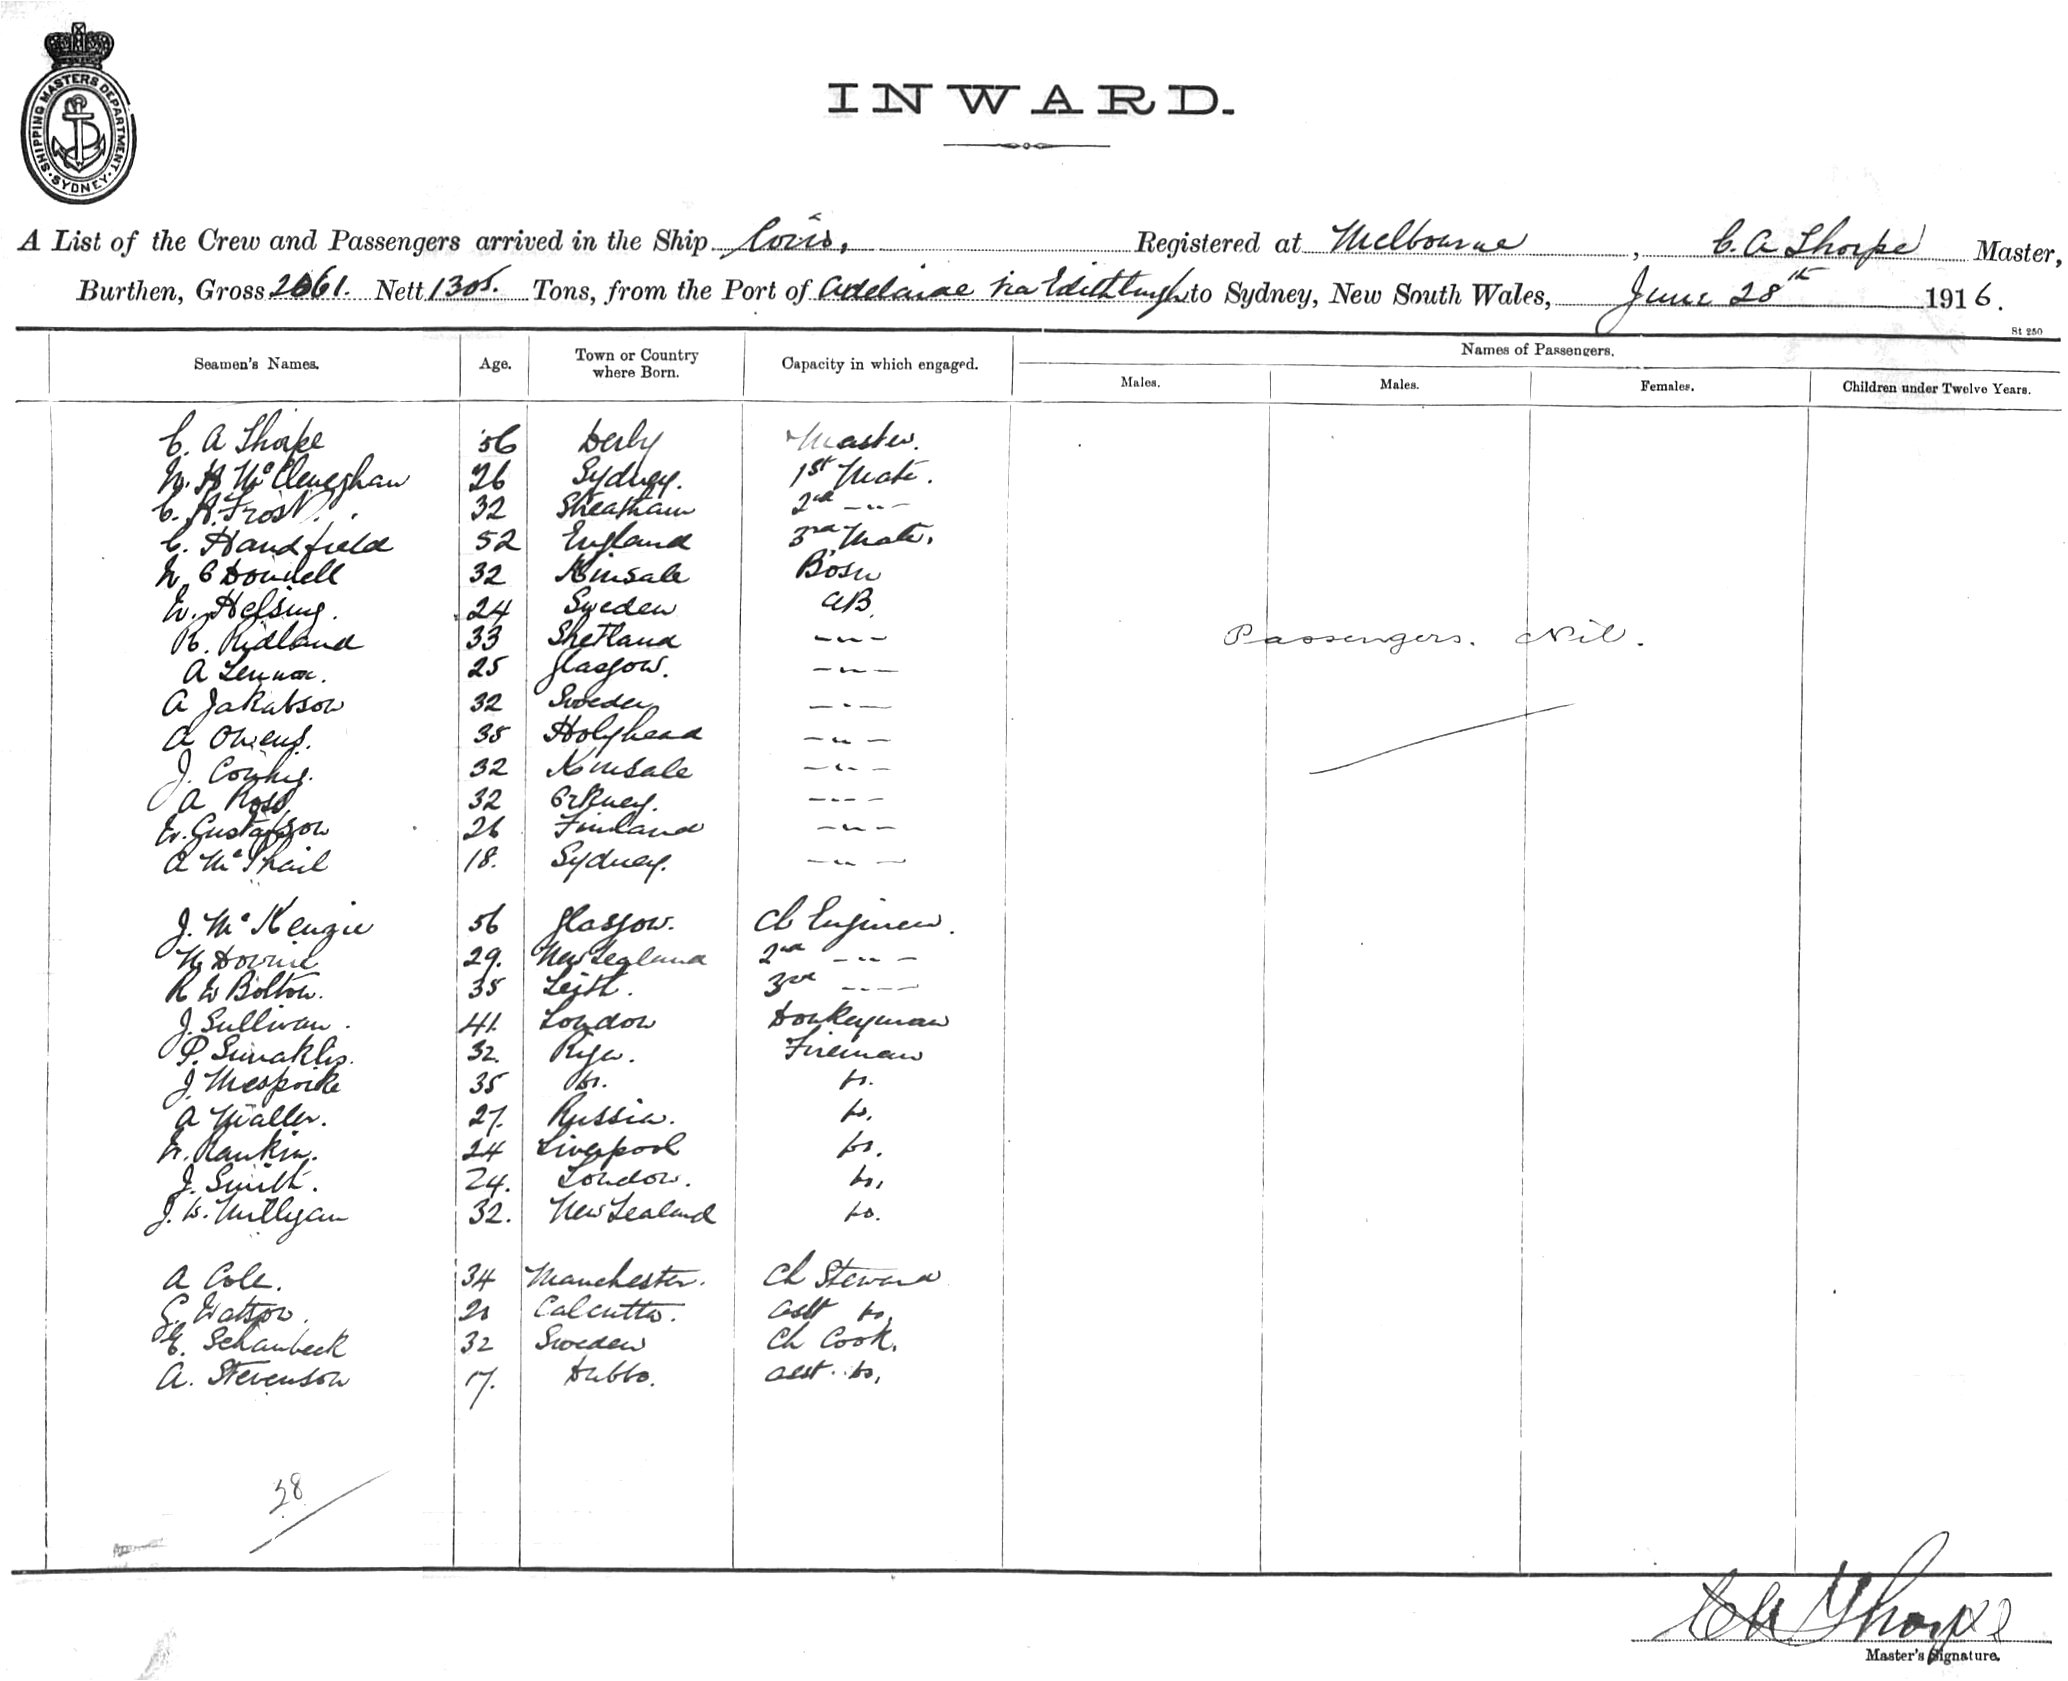 SHIPPING MASTERS DEPARTMENT · SYDNEY ·
INWARD.
A List of the Crew and Passengers arrived in the Ship Registered at Melbourne, C. A Thorpe Master,
Burthen, Gross 2061. Nett 1305. Tons, from the Port of Adelaide via Edithburgh to Sydney, New South Wales, June 28th 1916.
St 250
Seamen's Names. Age. Town or Country where Born. Capacity in which engaged. Names of Passengers.
Males. Males. Females. Children under Twelve Years.
C. A Thorpe 56 Derby Master.
McCleneghan 26 Sydney. 1st Mate.
C. R. Frost. 32 Streatham 2nd -"-
C. Handfield 52 England 3rd Mate.
O'Donnell 32 Kinsale Bosn
Helsing. 24 Sweden AB.
R. Ridland 33 Shetland -"-
Passengers. Nil.
A Lennox. 25 Glasgow. -"-
A Jakabson 32 Sweden -"-
A Owens. 35 Holyhead -"-
J. 32 Kinsale -"-
A Ross. 32 Orkney. -"-
Gustafson 26 Finland -"-
A McPhail 18. Sydney. -"-
J. McKenzie 56 Glasgow. Ch Engineer.
Downie 29. New Zealand 2nd -"-
R W Bolton. 35 Leith. 3rd -"-
J. Sullivan. 41. London Donkeyman
P. 32. Riga. Fireman
J. 35 Do. Do.
A Waller. 27. Russia. Do.
Rankin. 24 Liverpool Do.
J. Smith. 24. London. Do.
J. W. Milligan 32. New Zealand Do.
A Cole. 34 Manchester. Ch Steward
G. Watson. Calcutta. asst Do.
E. Schanbeck 32 Sweden Ch Cook.
A. Stevenson 17. Dubbo. asst. Do.
28
C A Thorpe
Master's Signature.